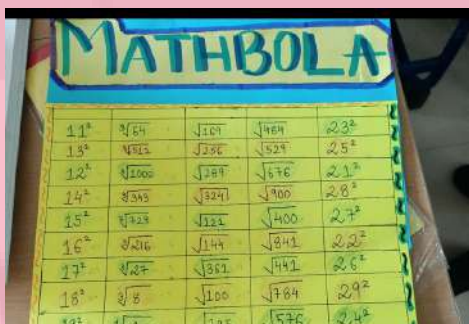 MATHBOLA
11² ∛64 √169 √484 23²
13² ∛512 √256 √529 25²
12² ∛1000 √289 √676 21²
14² ∛343 √324 √900 28²
15² ∛729 √121 √400 27²
16² ∛216 √144 √841 22²
17² ∛27 √361 √441 26²
18² ∛8 √100 √784 29²
√576 24²